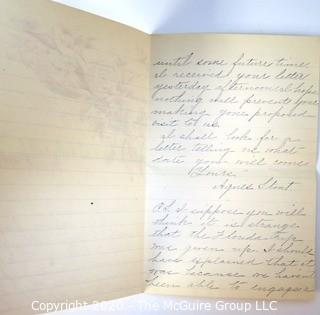 until some future time
I received your letter
yesterday afternoon I hope
nothing will prevent your
making your proposed
visit to us.
I shall look for a
letter telling me what
date you will come
Yours
Agnes
I suppose you will
think it is strange
that the Florida trip
was given up. I should
have explained that it
was because we haven't
been able to engage
Copyright 2020 - The McGuire Group LLC